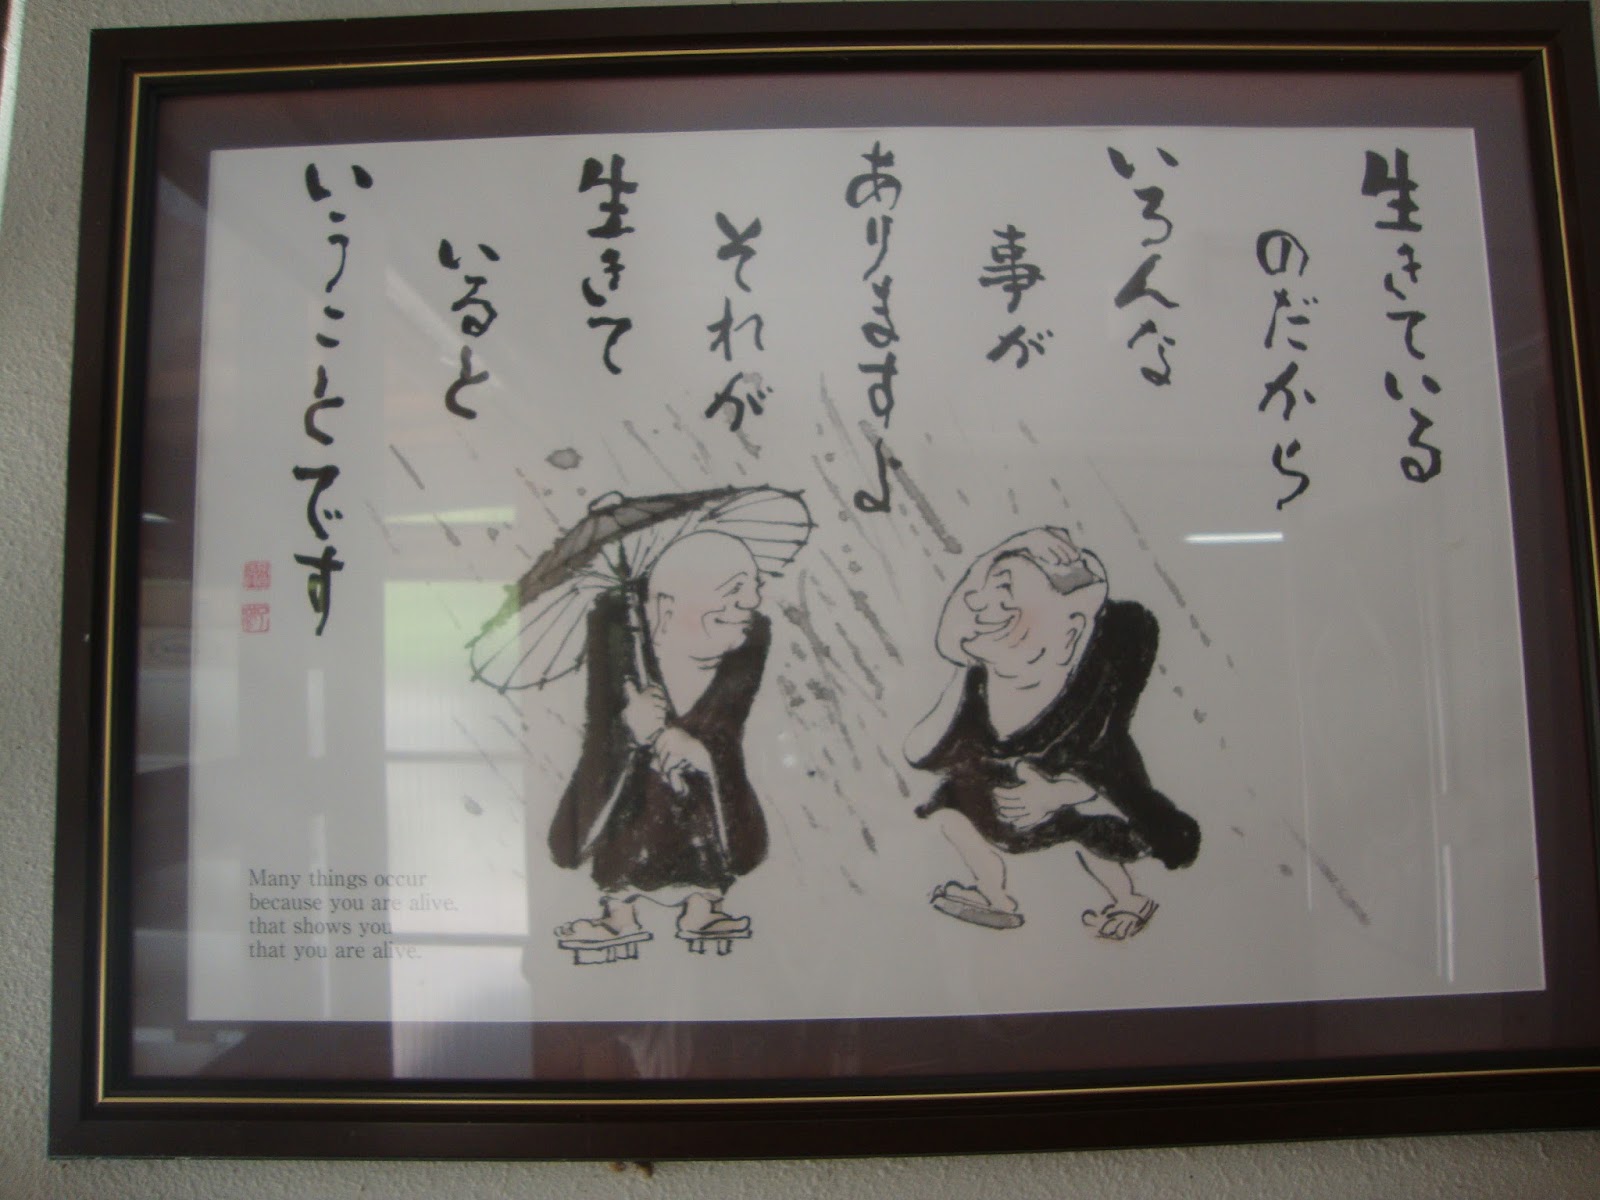 生きている
のだから
いろんな
事が
ありますよ
それが
生きて
いると
いうことです
Many things occur
because you are alive.
that shows you
that you are alive.